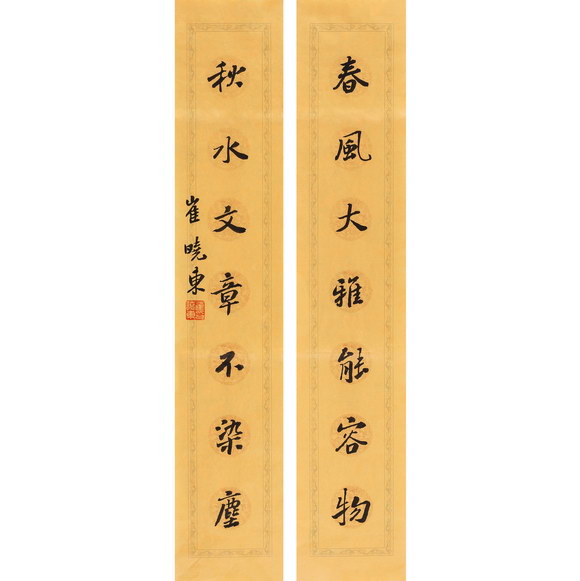 春風大雅能容物
秋水文章不染塵
崔曉東